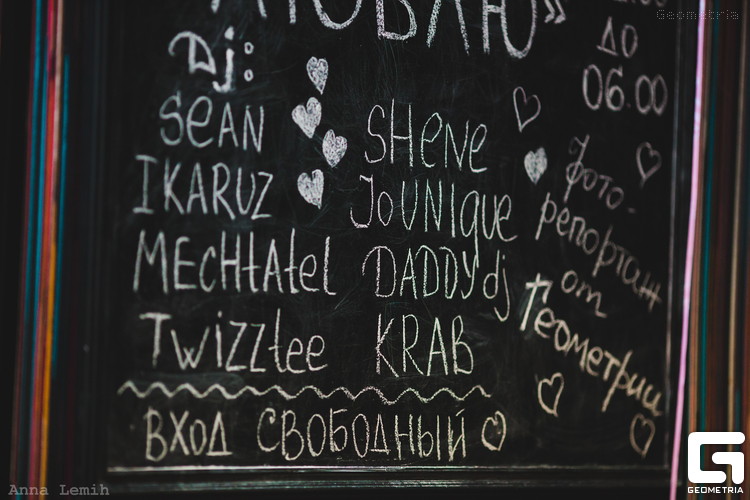 Geometria
ДО
06.00
Dj:
SEAN
SHENE
IKARUZ
JOUNIQUE
MECHtAtEL
DADDY dj
Twizztee
KRAB
фото-
репортаж
от
Геометрии
ВХОД СВОБОДНЫЙ
Anna Lemih
GEOMETRIA